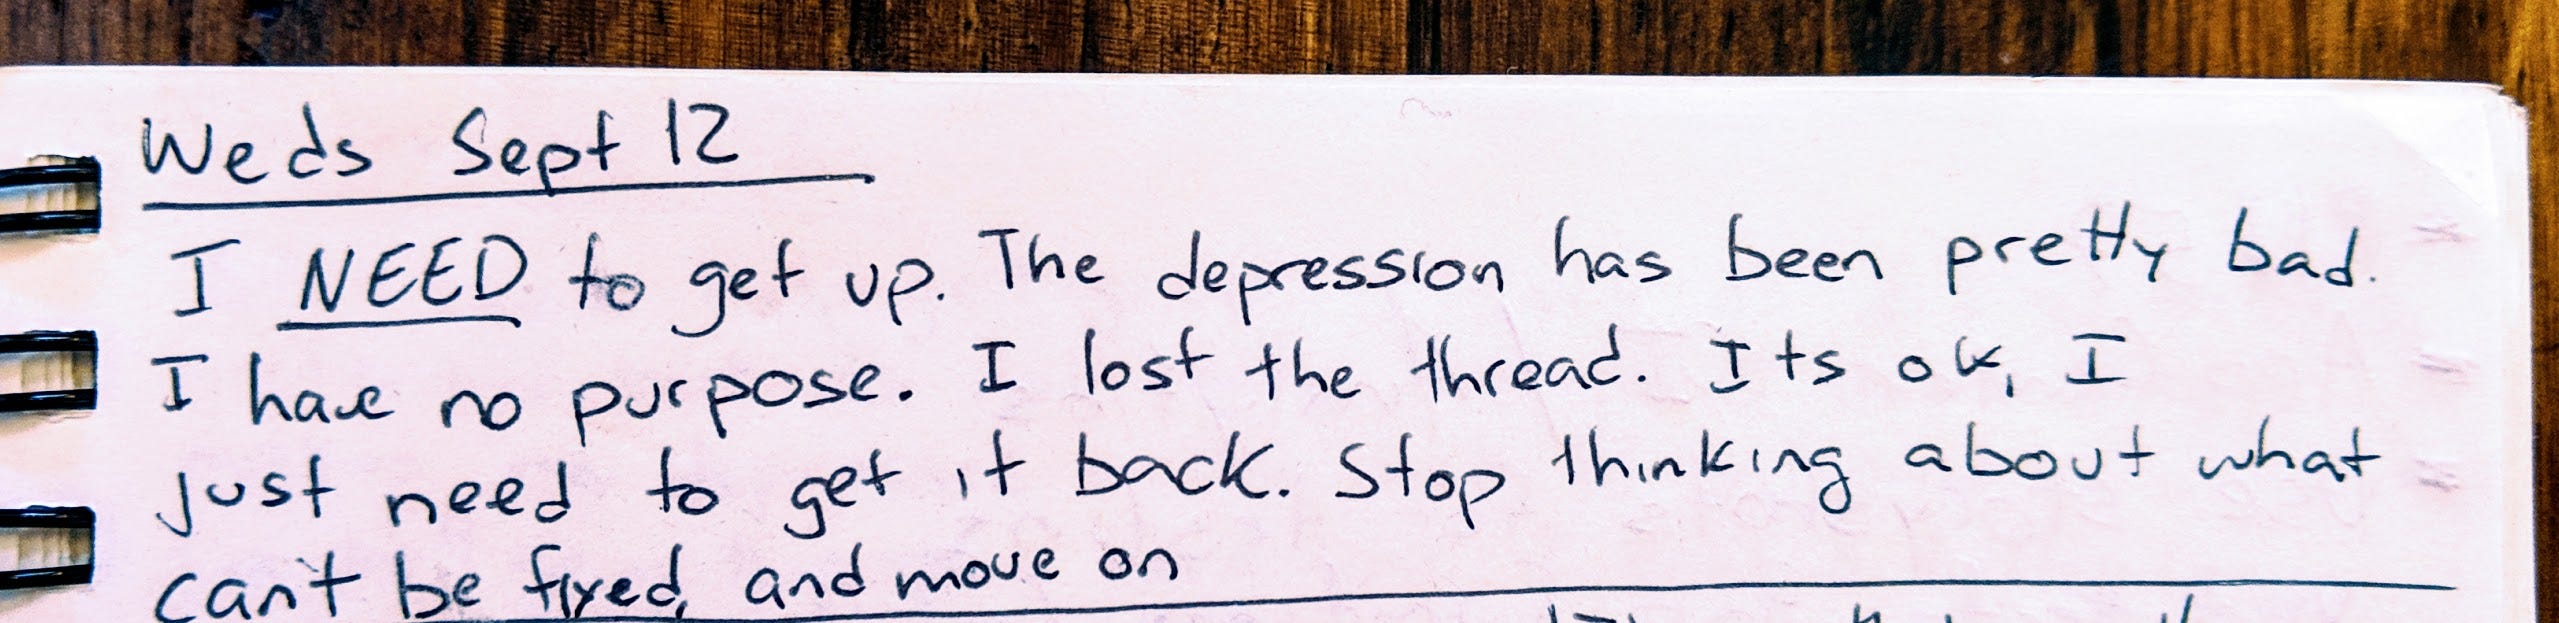 Weds Sept 12
I NEED to get up. The depression has been pretty bad.
I have no purpose. I lost the thread. Its ok, I
just need to get it back. Stop thinking about what
can't be fixed, and move on